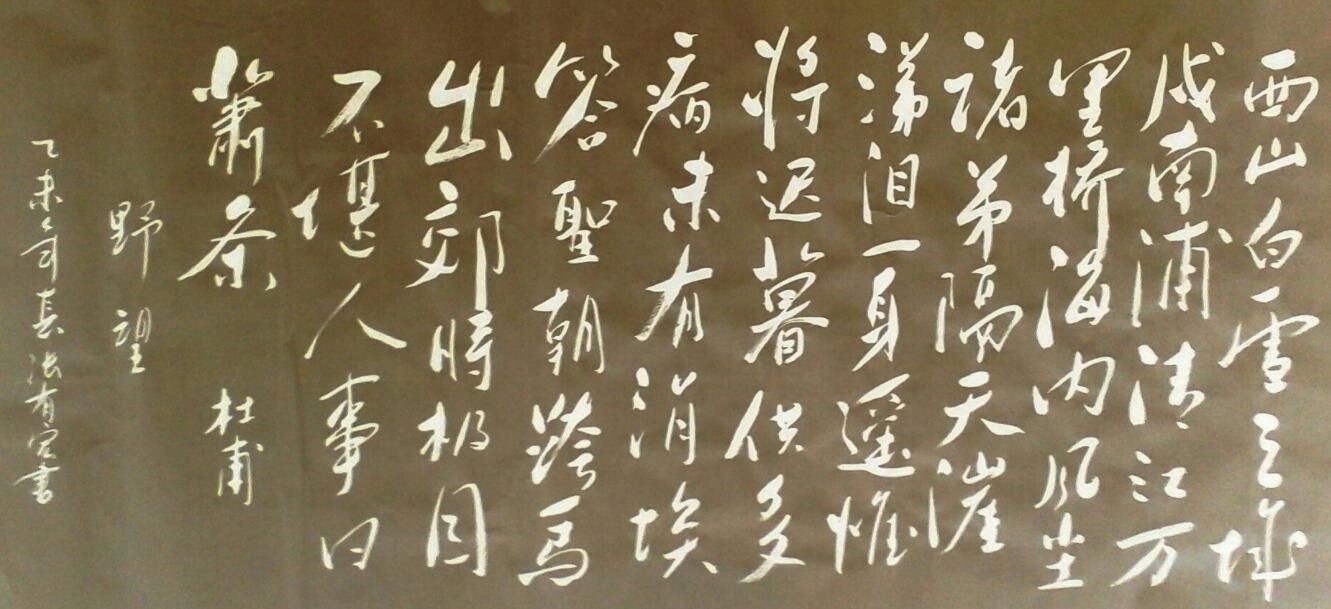 西山白雪三城
戍南浦清江万
里桥海内风尘
诸弟隔天涯
涕泪一身遥惟
将迟暮供多
病未有涓埃
答聖朝跨马
出郊時极目
不堪人事日
蕭条 杜甫
野望
乙未年 有 书